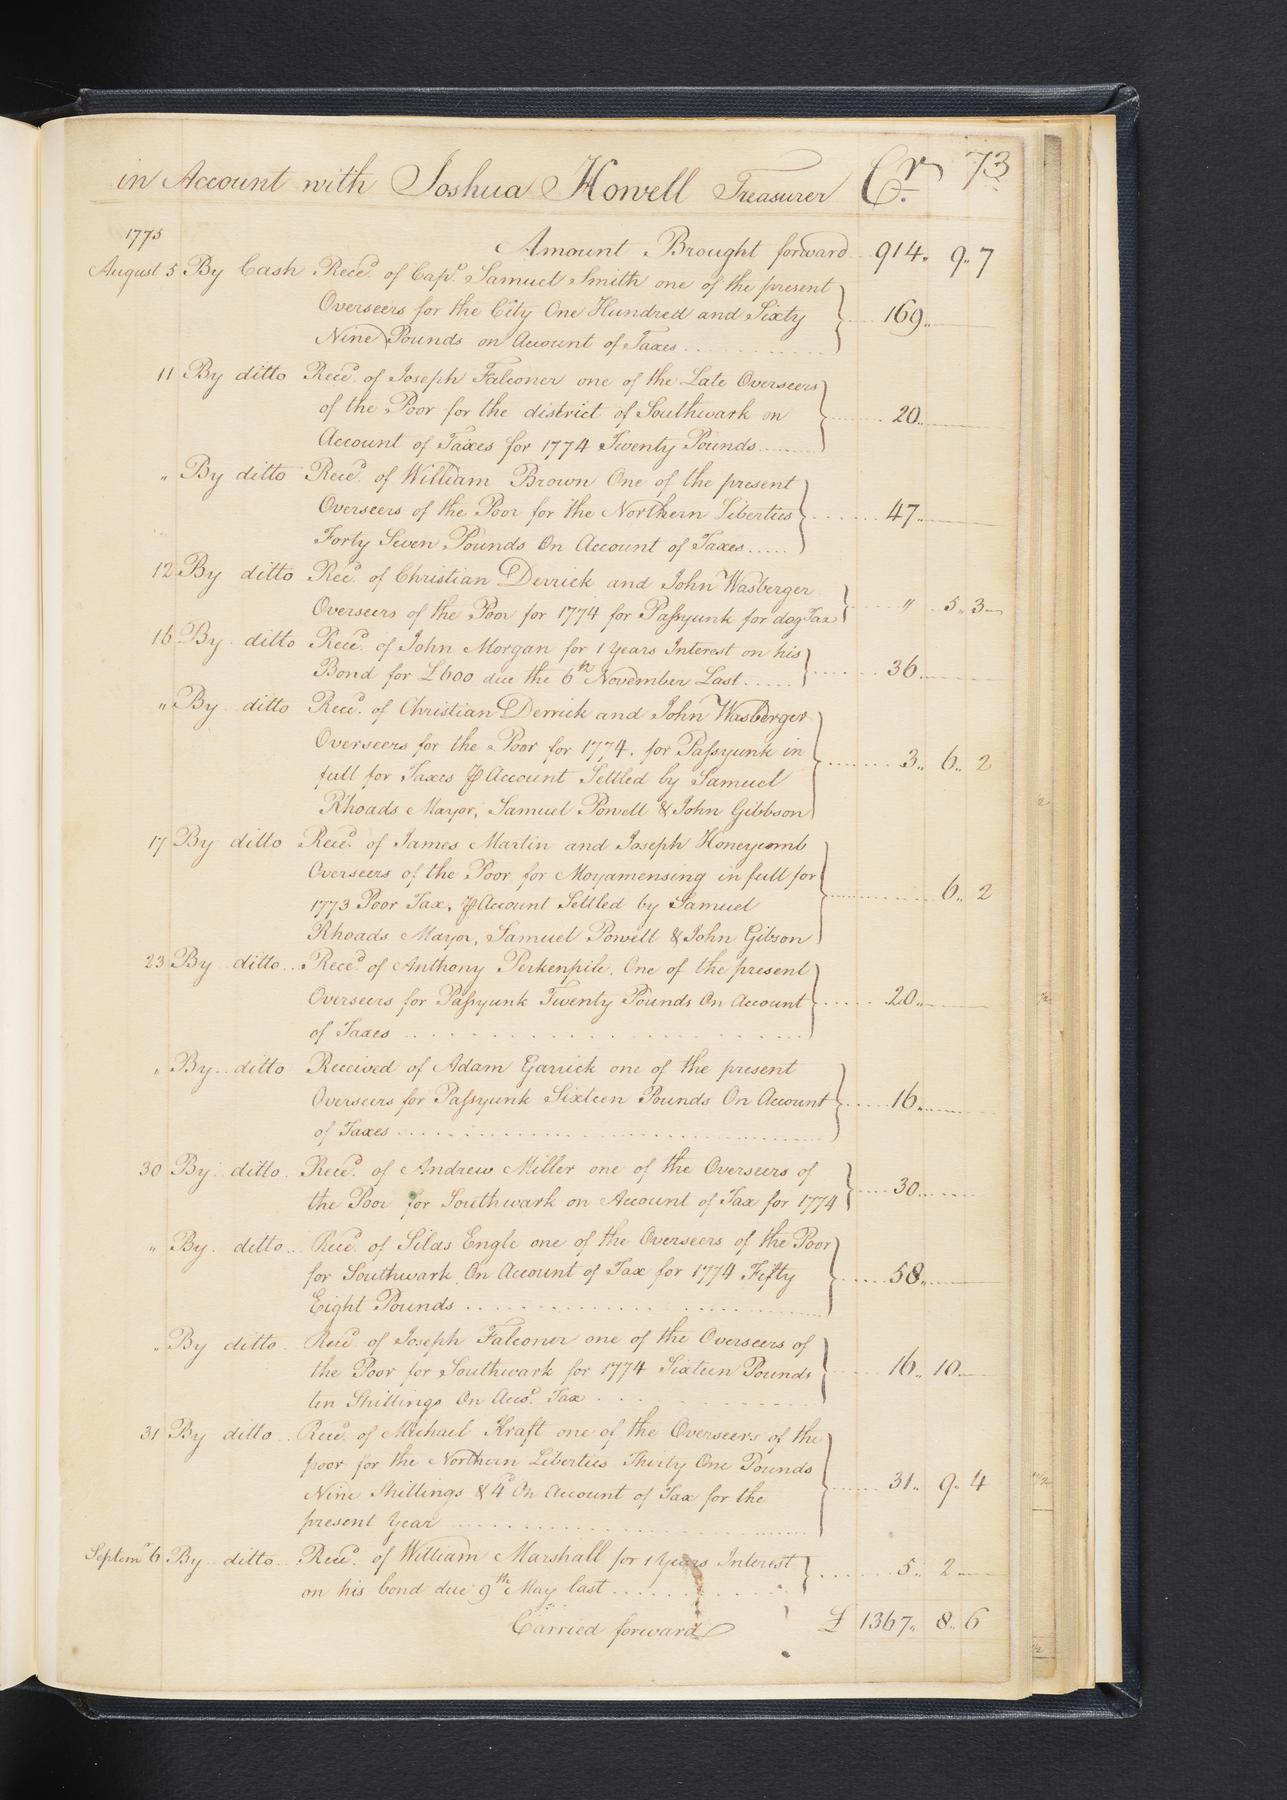 in Account with Joshua Howell Treasurer Cr. 73
1775
Amount Brought forward 914.. 9.. 7
August 5 By Cash Recd. of Capt. Samuel Smith one of the present
Overseers for the City One Hundred and Sixty 169..
Nine Pounds on Account of Taxes
11 By ditto Recd. of Joseph Falconer one of the Late Overseers
of the Poor for the district of Southwark on 20..
Account of Taxes for 1774 Twenty Pounds
" By ditto Recd. of William Brown One of the present
Overseers of the Poor for the Northern Liberties 47..
Forty Seven Pounds On Account of Taxes
12 By ditto Recd. of Christian Derrick and John Wasberger
Overseers of the Poor for 1774 for Passyunk for dog Tax " 5.. 3
16 By ditto Recd. of John Morgan for 1 Years Interest on his
Bond for £600 due the 6th November Last 36
" By ditto Recd. of Christian Derrick and John Wasberger
Overseers for the Poor for 1774. for Passyunk in
full for Taxes ⅌ Account Settled by Samuel 3.. 6.. 2
Rhoads Mayor, Samuel Powell & John Gibbson
17 By ditto Recd. of James Martin and Joseph Honeycomb
Overseers of the Poor for Moyamensing in full for 6.. 2
1773 Poor Tax, ⅌ Account Settled by Samuel
Rhoads Mayor, Samuel Powell & John Gibson
23 By ditto Recd. of Anthony Perkenpile. One of the present
Overseers for Passyunk Twenty Pounds On Account 20..
of Taxes
" By ditto Received of Adam Garrick one of the present
Overseers for Passyunk Sixteen Pounds On Account 16..
of Taxes
30 By ditto Recd. of Andrew Miller one of the Overseers of
the Poor for Southwark on Account of Tax for 1774 30
" By ditto Recd. of Silas Engle one of the Overseers of the Poor
for Southwark On Account of Tax for 1774 Fifty 58..
Eight Pounds
" By ditto Recd. of Joseph Falconer one of the Overseers of
the Poor for Southwark for 1774 Sixteen Pounds 16.. 10
ten Shillings On Acco. Tax
31 By ditto Recd. of Michael Kraft one of the Overseers of the
poor for the Northern Liberties Thirty One Pounds
Nine Shillings & 4d On Account of Tax for the 31.. 9.. 4
present Year
Septemr 6 By ditto Recd. of William Marshall for 1 Years Interest
on his bond due 9th May last 5.. 2
Carried forward £ 1367.. 8.. 6